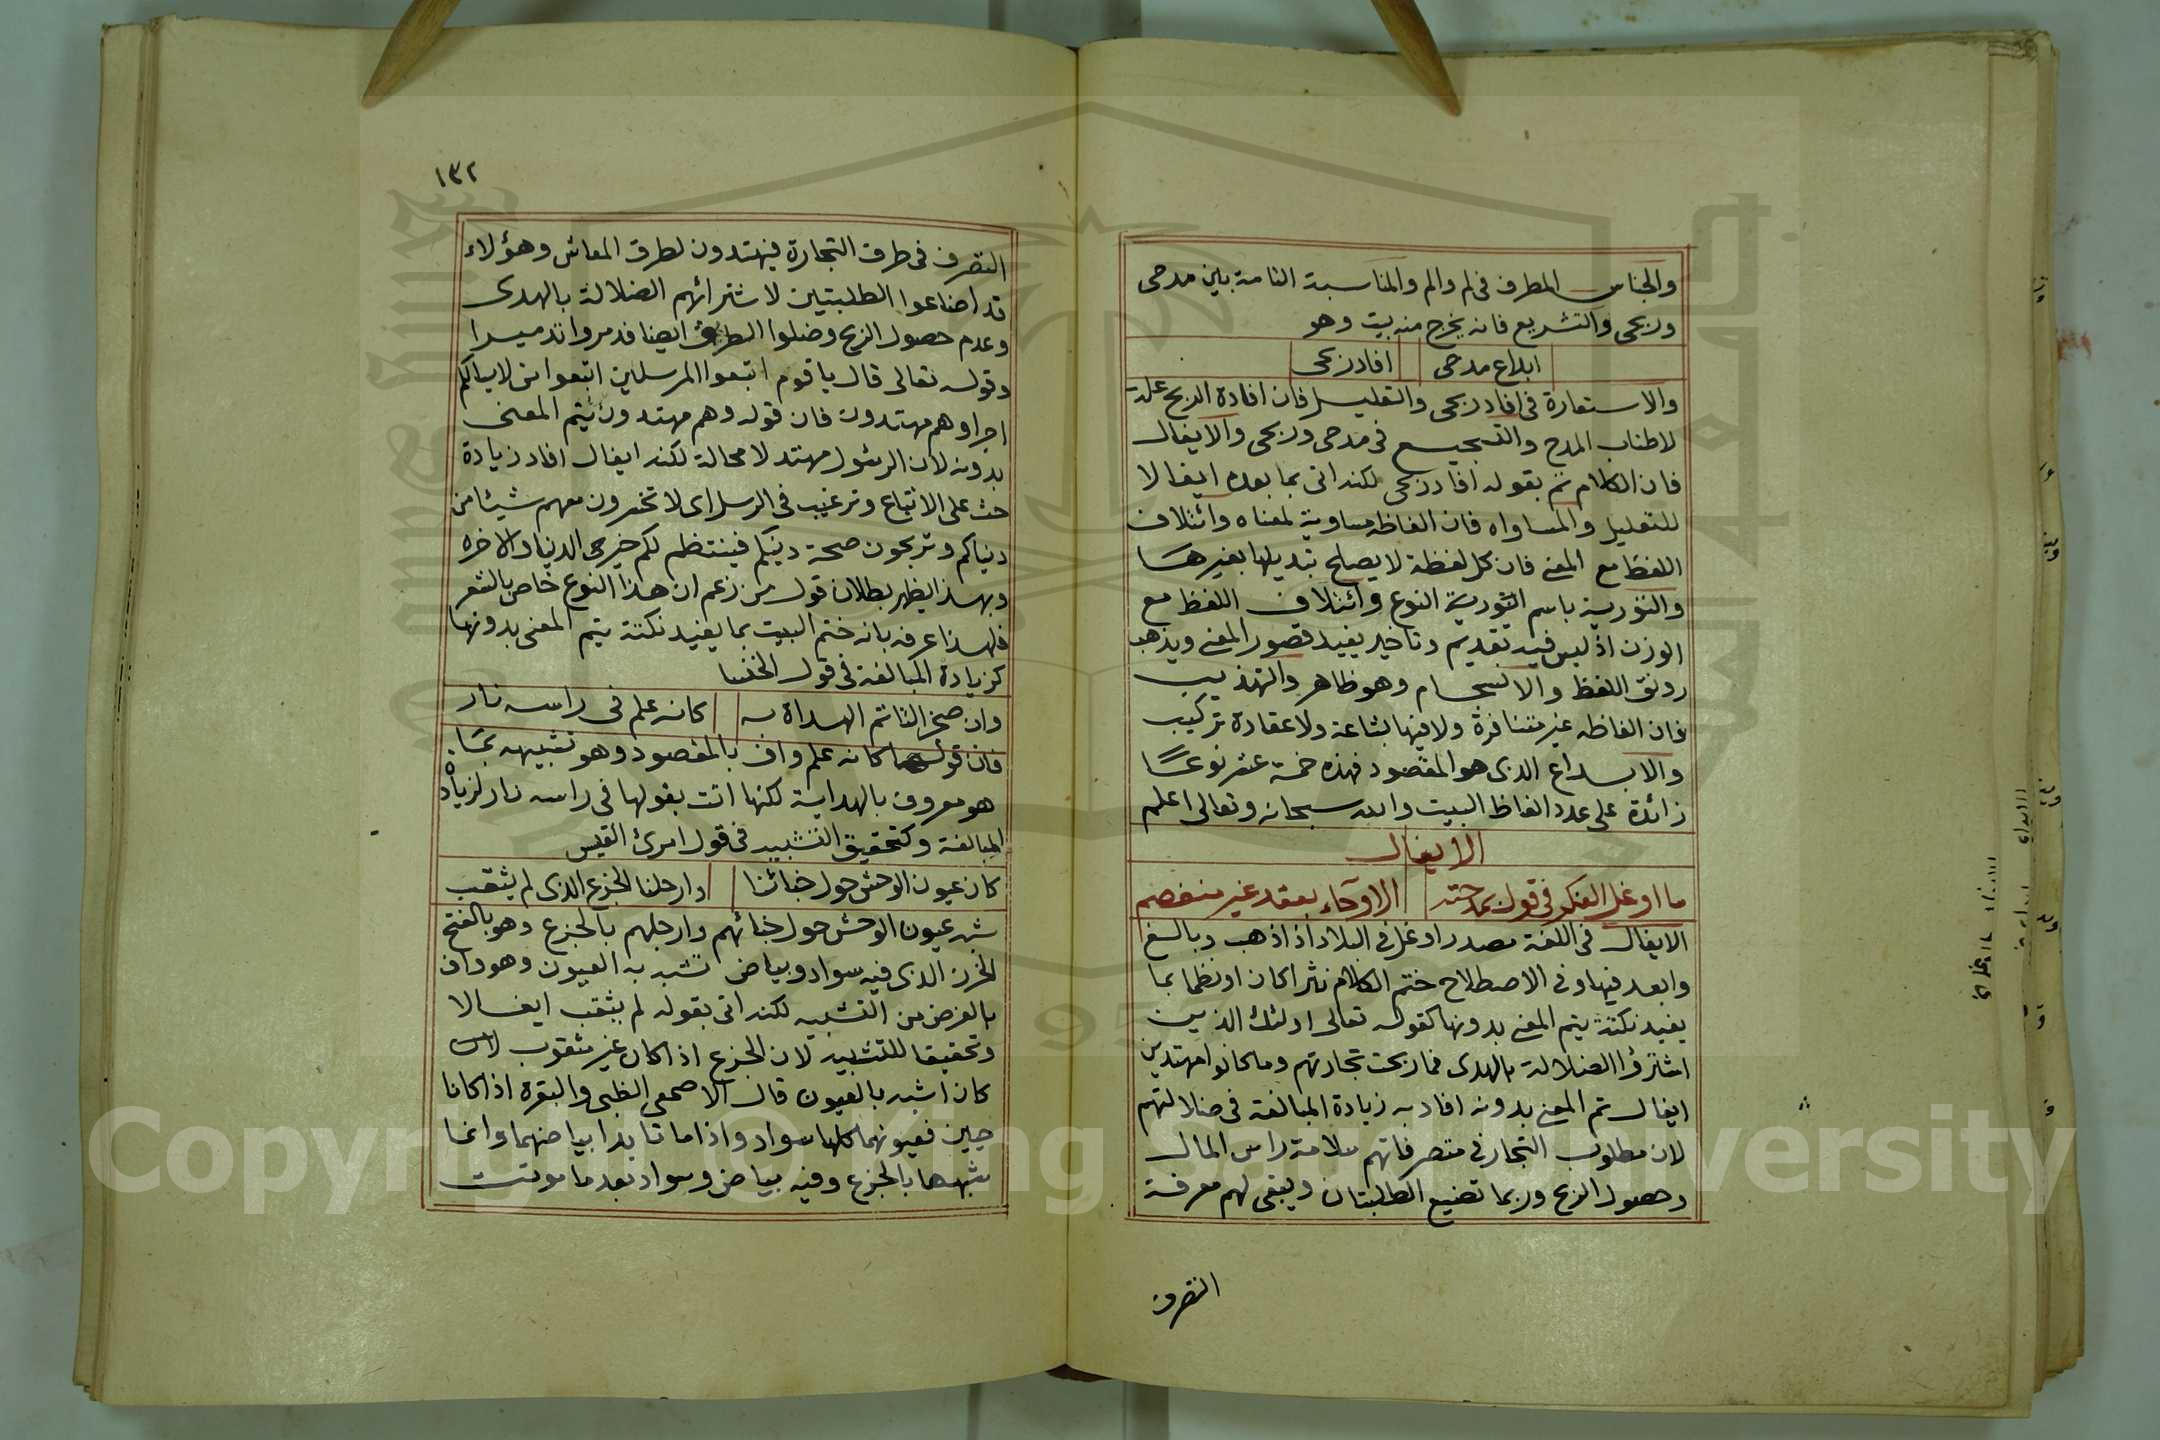 والجناس المطرف فى لم والم والمناسبة التامة بين مدحى
وربحى والتشريع فانه يخرج منه بيت وهو
ابداع مدحى افاد ربحى
والاستعارة فى افاد ربحى والتعليل فان افادة الربح علة
لاطناب المدح والتسجيع فى مدحى وربحى والايغال
فان الكلام تم بقوله افاد ربحى لكنه اتى بما بعده ايغالا
للتعليل والمساواه فان الفاظه مساوية لمعناه وائتلاف
اللفظ مع المعنى فان كل لفظة لا يصلح تبديلها بغيرها
والتورية باسم التورية النوع وائتلاف اللفظ مع
الوزن اذ ليس فيه تقديم وتاخير يفيد قصور المعنى ويذهب
رونق اللفظ والانسجام وهو ظاهر والتهذيب
فان الفاظه غير متنافرة ولا فيها بشاعة ولا عقادة تركيب
والابداع الذى هو المقصود فهذه خمسة عشر نوعًا
زائدة على عدد الفاظ البيت والله سبحانه وتعالى اعلم
الايغال
ما اوغل الفكر فى قول بمدحته الا وجاء بعقد غير منفصم
الايغال فى اللغة مصدر اوغل فى البلاد اذا ذهب وبالغ
وابعد فيها وفى الاصطلاح ختم الكلام نثرا كان او نظما بما
يفيد نكتة يتم المعنى بدونها كقوله تعالى اولئك الذين
اشترؤا الضلالة بالهدى فما ربحت تجارتهم وما كانوا مهتدين
ايغال تم المعنى بدونه افاد به زيادة المبالغة فى ضلالتهم
لان مطلوب التجار فى متصرفاتهم سلامة راس المال
وحصول الربح وربما تضيع الطلبتان ويبقى لهم معرفة
التصرف
١٣٢
التصرف فى طرق التجارة فيهتدون لطرق المعاش وهؤلاء
قد اضاعوا الطلبتين لاشترائهم الضلالة بالهدى
وعدم حصول الربح وضلوا الطرق ايضا فدمروا تدميرا
وقوله تعالى قال يا قوم اتبعوا المرسلين اتبعوا من لا يسالكم
اجرا وهم مهتدون فان قوله وهم مهتدون يتم المعنى
بدونه لان الرسول مهتد لا محالة لكنه ايغال افاد زيادة
حث على الاتباع وترغيب فى الرسل اى لا تخسرون معهم شيئا من
دنياكم وتربحون صحة دينكم فينتظم لكم خيرى الدنيا والاخره
وبهذا يظهر بطلان قول من زعم ان هذا النوع خاص بالشعر
فلهذا عرفه بانه ختم البيت بما يفيد نكتة يتم المعنى بدونها
كزيادة المبالغة فى قول الخنسا
وان صخرا لتاتم الهداة به كانه علم فى راسه نار
فان قولها كانه علم واف بالمقصود وهو تشبيهه بما
هو معروف بالهداية لكنها اتت بقولها فى راسه نار لزيادة
المبالغة وكتحقيق التشبيه فى قول امرئ القيس
كان عيون الوحش حول خبائنا وارحلنا الجزع الذى لم يثقب
شبه عيون الوحش حول خبائهم وارحلهم بالجزع وهو بالفتح
الخرز الذى فيه سواد وبياض تشبه به العيون وهو واف
بالغرض من التشبيه لكنه اتى بقوله لم يثقب ايغالا
وتحقيقا للتشبيه لان الجزع اذا كان غير مثقوب
كان اشبه بالعيون قال الاصمعى الظبى والبقرة اذا كانا
حيين فعيونهما كلها سواد واذا ماتا بدا بياضهما وانما
شبهها بالجزع وفيه بياض وسواد بعد ما موتت
Copyright © King Saud University